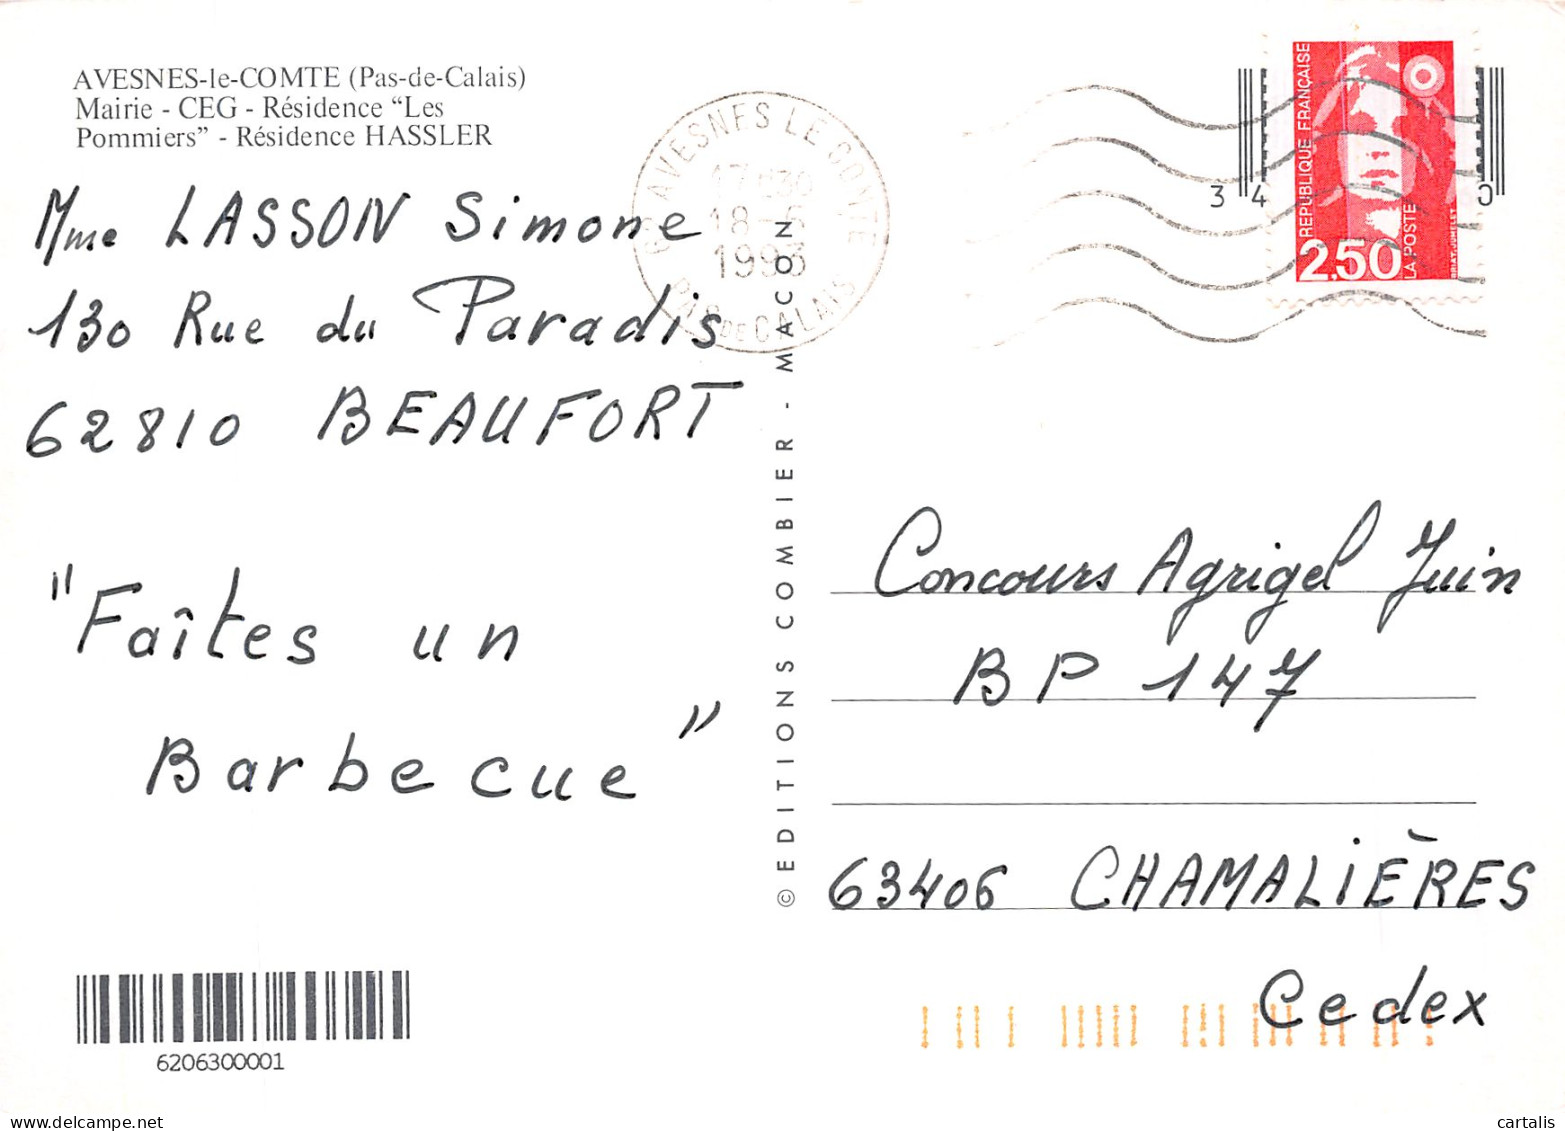 AVESNES-le-COMTE (Pas-de-Calais)
Mairie - CEG - Résidence “Les
Pommiers” - Résidence HASSLER
Mme LASSON Simone
130 Rue du Paradis
62810 BEAUFORT
"Faîtes un
Barbecue"
6206300001
© EDITIONS COMBIER - MACON
AVESNES LE COMTE
18-6
1993
PAS DE CALAIS
REPUBLIQUE FRANÇAISE
2,50
LA POSTE
3 4 0
Concours Agrigel Juin
BP 147
63406 CHAMALIÈRES
Cedex
delcampe.net
cartalis